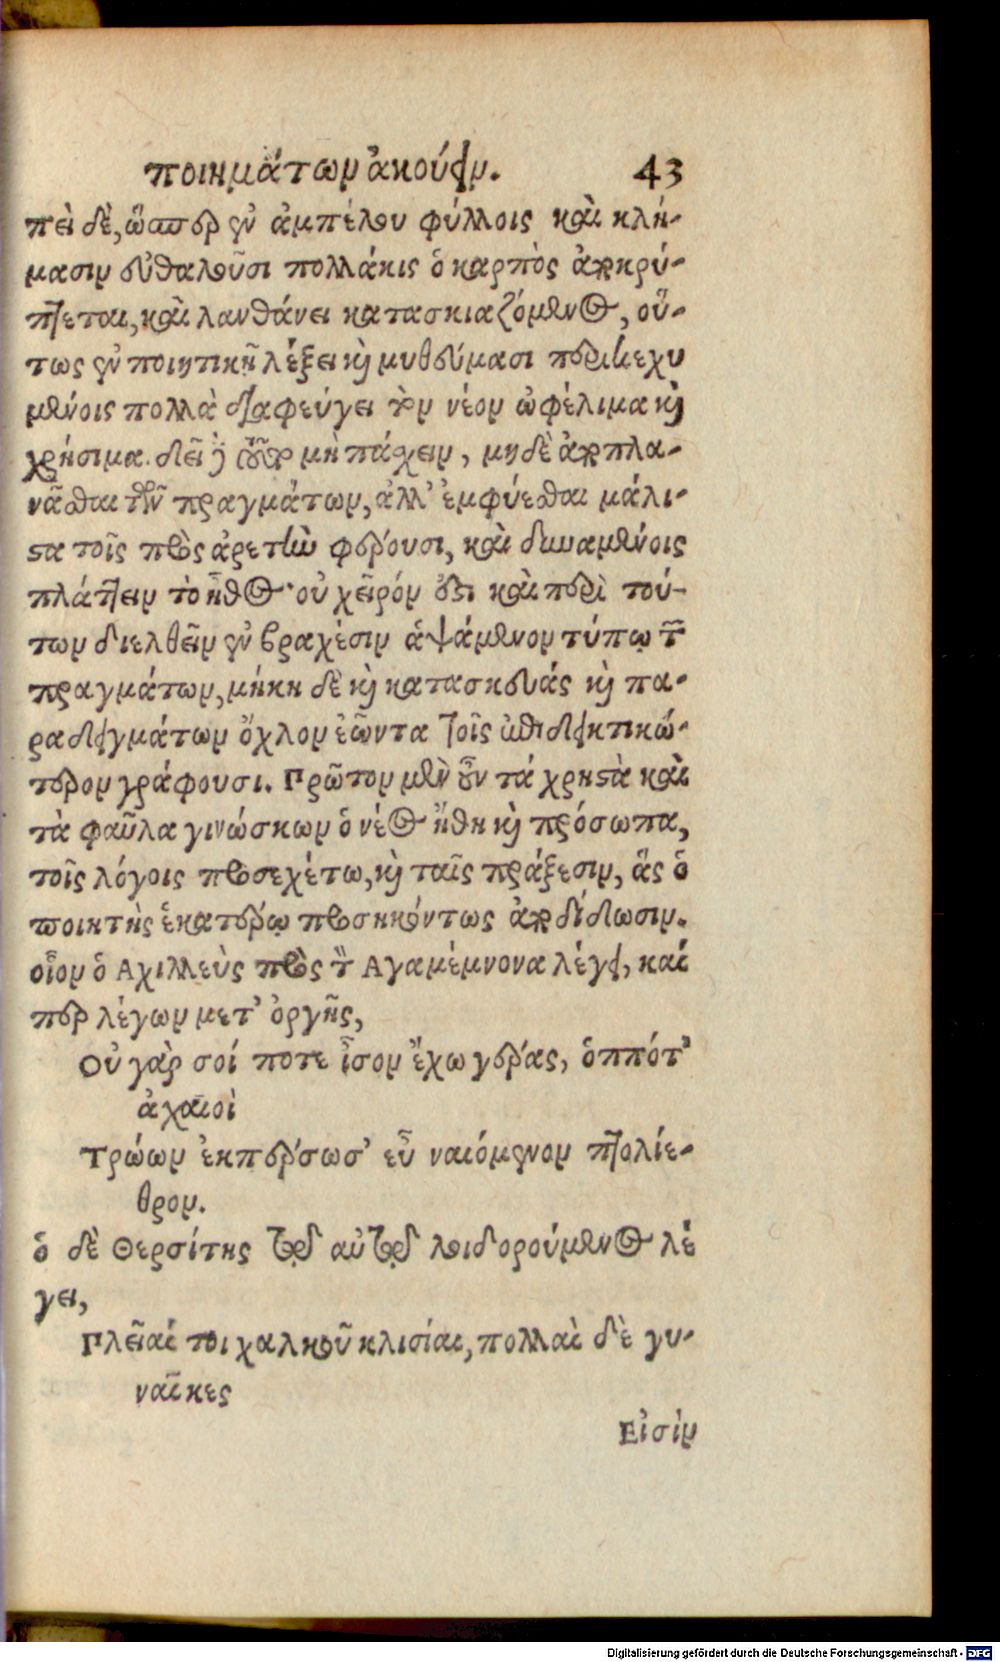 ποιημάτων ἀκούειν. 43
πεὶ δὲ, ὥσπερ ἐν ἀμπέλου φύλλοις καὶ κλή-
μασιν εὐθαλοῦσι πολλάκις ὁ καρπὸς ἀποκρύ-
πτεται, καὶ λανθάνει κατασκιαζόμενος, οὕ-
τως ἐν ποιητικῇ λέξει καὶ μυθεύμασι περικεχυ
μένοις πολλὰ διαφεύγει τὸν νέον ὠφέλιμα καὶ
χρήσιμα. δεῖ δὲ τοῦτο μὴ πάχειν, μηδὲ ἀποπλα-
νᾶσθαι τῶν πραγμάτων, ἀλλ' ἐμφύεσθαι μάλι-
στα τοῖς πρὸς ἀρετὴν φέρουσι, καὶ δυναμένοις
πλάττειν τὸ ἦθος· οὐ χεῖρόν ἐστι καὶ περὶ τού-
των διελθεῖν ἐν βραχέσιν ἁψάμενον τύπῳ τῶν
πραγμάτων, μήκη δὲ καὶ κατασκευάς καὶ πα-
ραδειγμάτων ὄχλον ἐῶντα τοῖς ἐπιδεικτικώ-
τερον γράφουσι. Πρῶτον μὲν οὖν τά χρηστὰ καὶ
τὰ φαῦλα γινώσκων ὁ νέος ἤθη καὶ πρόσωπα,
τοῖς λόγοις προσεχέτω, καὶ ταῖς πράξεσιν, ἃς ὁ
ποιητὴς ἑκατέρῳ προσηκόντως ἀποδίδωσιν.
οἷον ὁ Αχιλλεὺς πρὸς τὸν Αγαμέμνονα λέγει, καί
περ λέγων μετ' ὀργῆς,
Οὐ γὰρ σοί ποτε ἶσον ἔχω γέρας, ὁππότ'
ἀχαιοὶ
Τρώων ἐκπέρσωσ' εὖ ναιόμενον πτολίε-
θρον.
ὁ δὲ Θερσίτης τῷ αὐτῷ λοιδορούμενος λέ
γει,
Πλεῖαί τοι χαλκοῦ κλισίαι, πολλαὶ δὲ γυ-
ναῖκες
Εἰσὶν
Digitalisierung gefördert durch die Deutsche Forschungsgemeinschaft - DFG